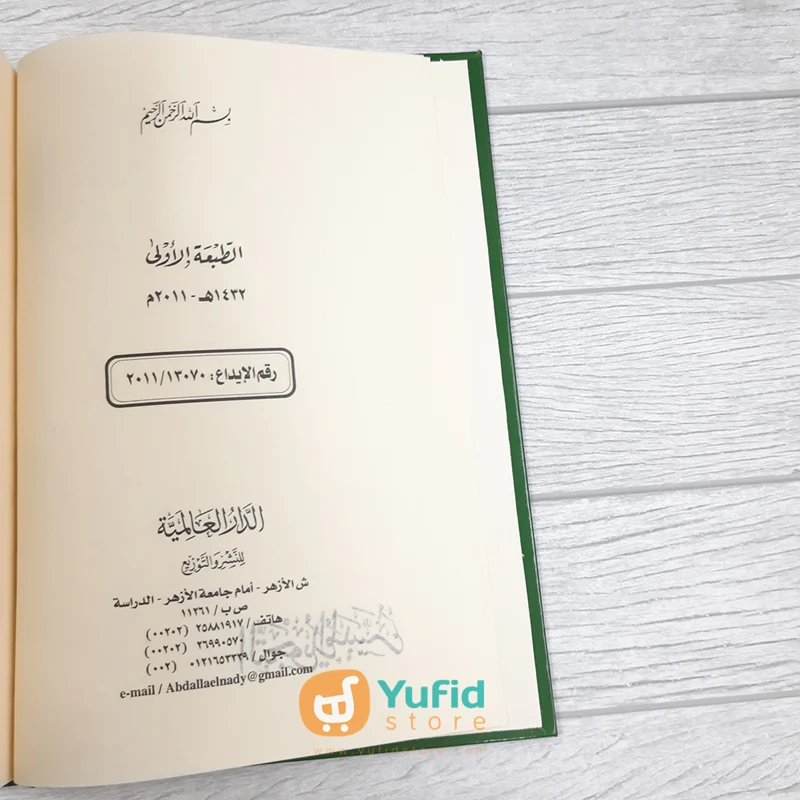 بسم الله الرحمن الرحيم
الطبعة الأولى
١٤٣٢هـ - ٢٠١١م
رقم الإيداع: ٢٠١١/١٣٠٧٠
الدار العالمية
للنشر والتوزيع
ش الأزهر - أمام جامعة الأزهر - الدراسة
ص ب / ١١٢٦١
هاتف / ٢٥٨٨١٩١٧ (٠٠٢٠٢)
٢٦٩٩٠٥٧٠ (٠٠٢٠٢)
جوال / ٠١٢١٦٥٣٣٣٩ (٠٠٢)
e-mail / Abdallaelnady@gmail.com
Yufid
store